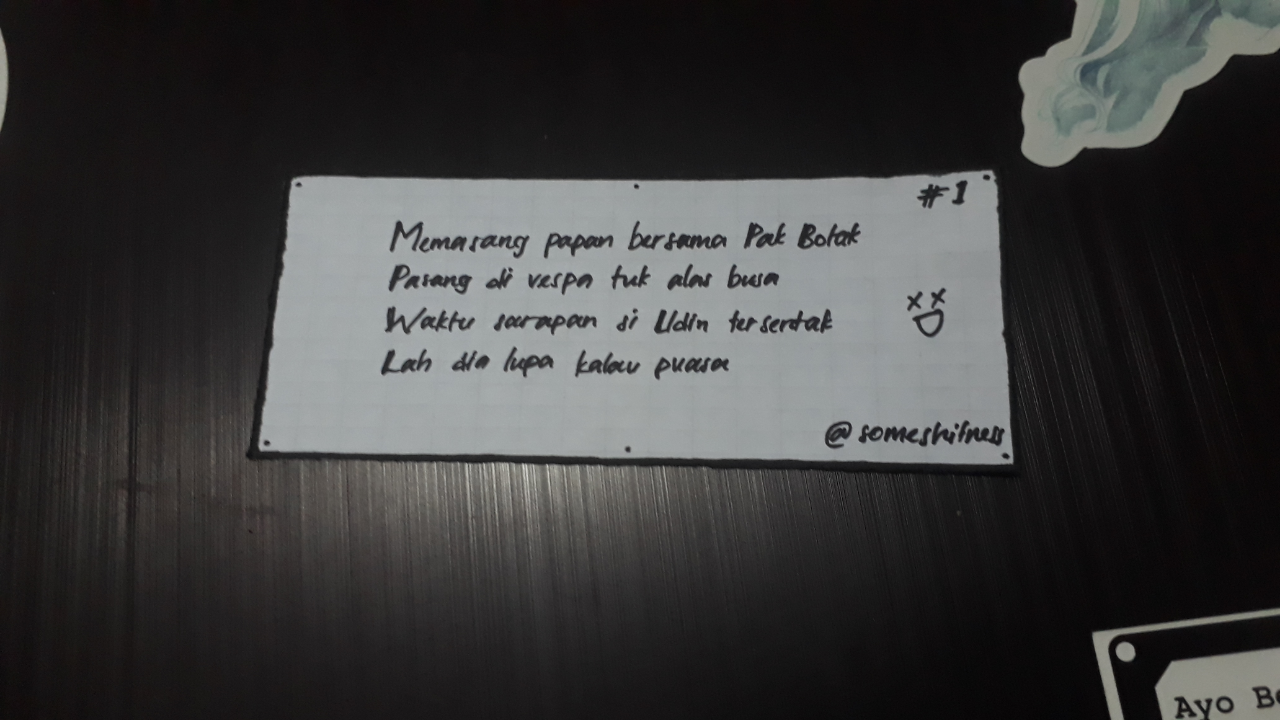 #1
Memasang papan bersama Pak Botak
Pasang di vespa tuk alas busa
Waktu sarapan si Udin tersentak
Lah dia lupa kalau puasa
@someshitness
Ayo